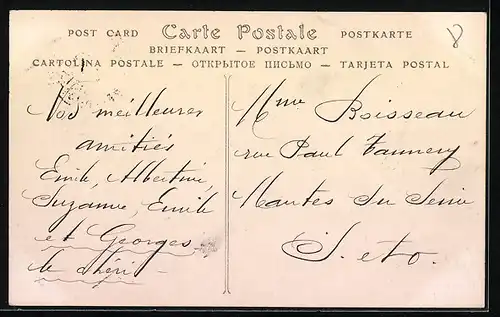 POST CARD Carte Postale POSTKARTE
BRIEFKAART — POSTKAART
CARTOLINA POSTALE — ОТКРЫТОЕ ПИСЬМО — TARJETA POSTAL
Nos meilleures
amitiés
Emile, Albertine,
Suzanne, Emile
et Georges
le chéri —
Mme Boisseau
rue Paul Tannery
Mantes sur Seine
S. et O.